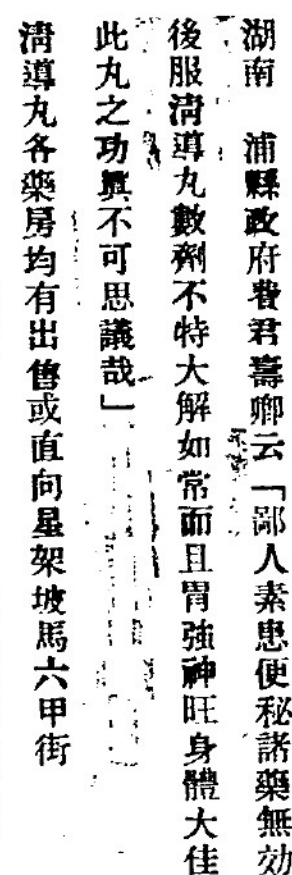 湖南　浦縣政府費君壽卿云「鄙人素患便秘諸藥無効
後服清導丸數劑不特大解如常而且胃強神旺身體大佳
此丸之功眞不可思議哉」
清導丸各藥房均有出售或直向星架坡馬六甲街